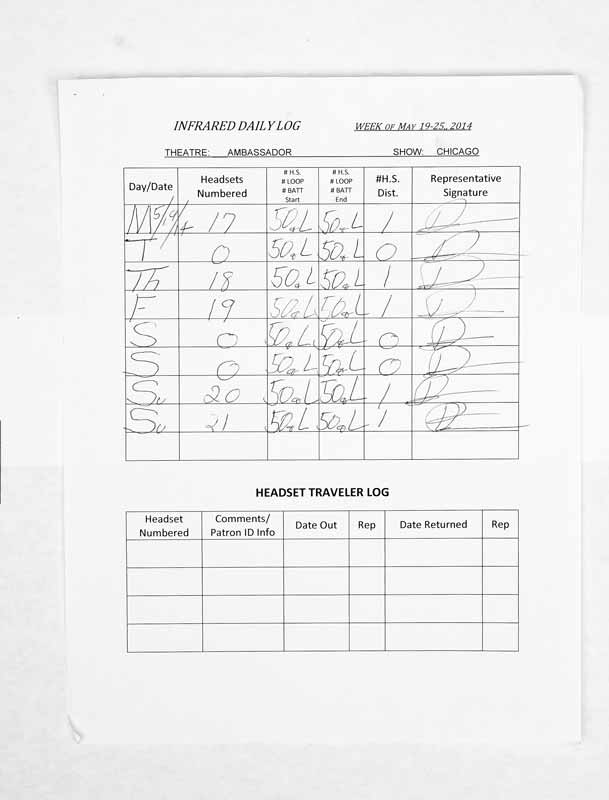 INFRARED DAILY LOG WEEK OF MAY 19-25, 2014
THEATRE: AMBASSADOR SHOW: CHICAGO
Day/Date Headsets Numbered # H.S. # LOOP # BATT Start # H.S. # LOOP # BATT End #H.S. Dist. Representative Signature
M 5/19/14 17 50 L 50 L 1
T 0 50 L 50 L 0
Th 18 50 L 50 L 1
F 19 50 L 50 L 1
S 0 50 L 50 L 0
S 0 50 L 50 L 0
Su 20 50 L 50 L 1
Su 21 50 L 50 L 1
HEADSET TRAVELER LOG
Headset Numbered Comments/ Patron ID Info Date Out Rep Date Returned Rep